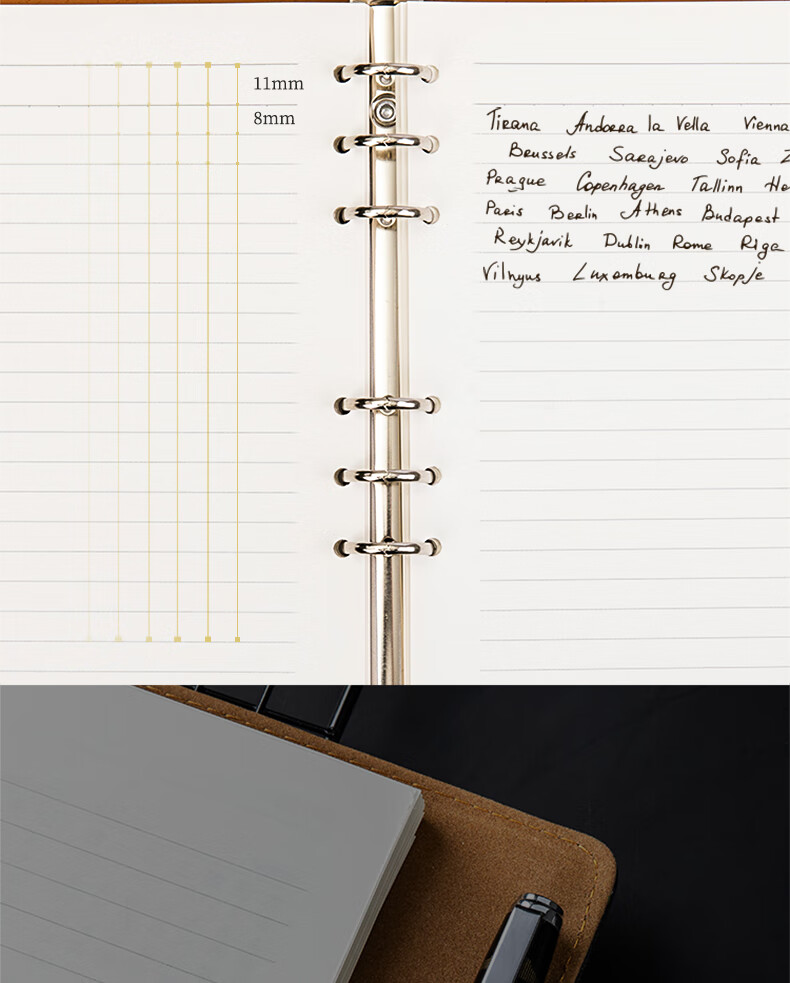 11mm
8mm
Tirana Andorra la Vella Vienna
Brussels Sarajevo Sofia
Prague Copenhagen Tallinn
Paris Berlin Athens Budapest
Reykjavik Dublin Rome Riga
Vilnyus Luxemburg Skopje